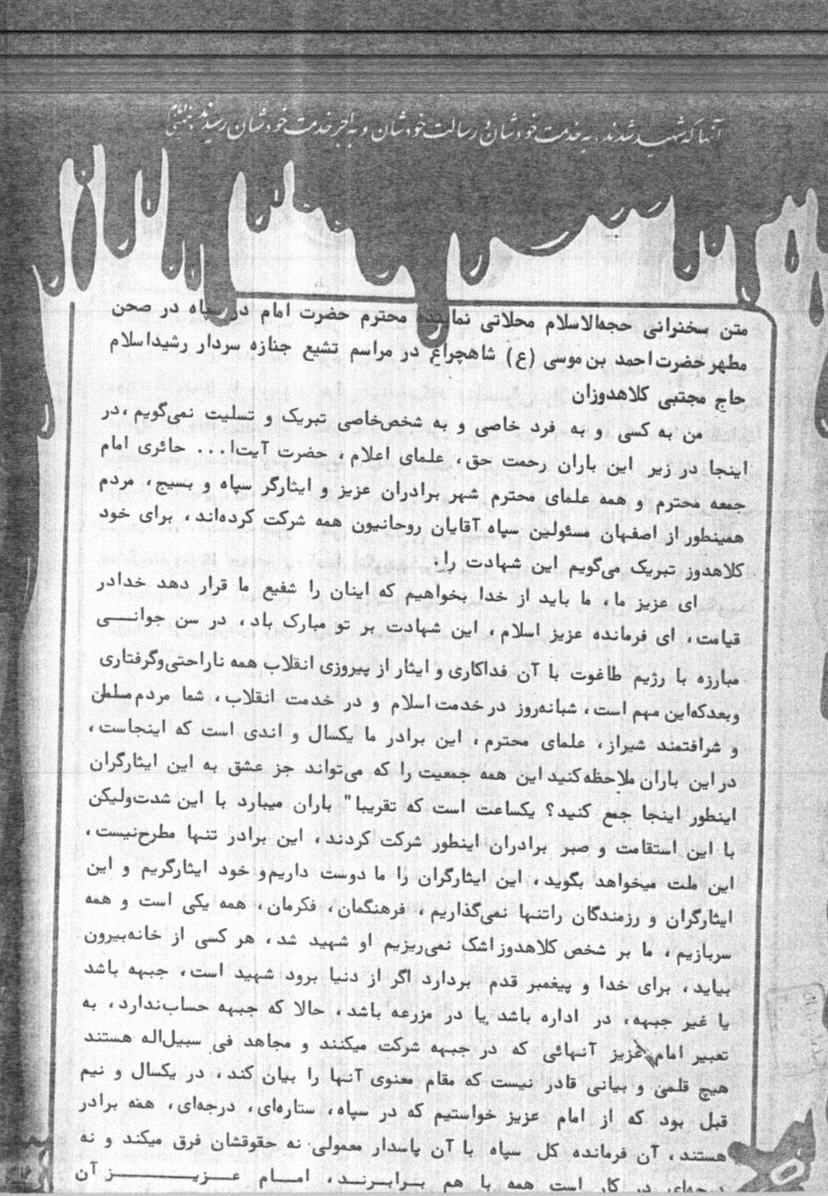 آنها که شهید شدند، به خدمت خودشان و رسالت خودشان و به اجر خدمت خودشان رسیدند
متن سخنرانی حجه‌الاسلام محلاتی نماینده محترم حضرت امام در سپاه در صحن
مطهر حضرت احمد بن موسی (ع) شاهچراغ در مراسم تشیع جنازه سردار رشید اسلام
حاج مجتبی کلاهدوزان
من به کسی و به فرد خاصی و به شخص‌خاصی تبریک و تسلیت نمی‌گویم، در
اینجا در زیر این باران رحمت حق، علمای اعلام، حضرت آیت‌ا... حائری امام
جمعه محترم و همه علمای محترم شهر برادران عزیز و ایثارگر سپاه و بسیج، مردم
همینطور از اصفهان مسئولین سپاه آقایان روحانیون همه شرکت کرده‌اند، برای خود
کلاهدوز تبریک می‌گویم این شهادت را.
ای عزیز ما، ما باید از خدا بخواهیم که اینان را شفیع ما قرار دهد خدادر
قیامت، ای فرمانده عزیز اسلام، این شهادت بر تو مبارک باد، در سن جوانــی
مبارزه با رژیم طاغوت با آن فداکاری و ایثار از پیروزی انقلاب همه ناراحتی‌وگرفتاری
وبعدکه‌این مهم است، شبانه‌روز در خدمت اسلام و در خدمت انقلاب، شما مردم مسلمان
و شرافتمند شیراز، علمای محترم، این برادر ما یکسال و اندی است که اینجاست،
در این باران ملاحظه‌کنید این همه جمعیت را که می‌تواند جز عشق به این ایثارگران
اینطور اینجا جمع کنید؟ یکساعت است که تقریبا" باران میبارد با این شدت‌ولیکن
با این استقامت و صبر برادران اینطور شرکت کردند، این برادر تنها مطرح‌نیست،
این ملت میخواهد بگوید، این ایثارگران را ما دوست داریم‌و خود ایثارگریم و این
ایثارگران و رزمندگان راتنها نمی‌گذاریم، فرهنگمان، فکرمان، همه یکی است و همه
سربازیم، ما بر شخص کلاهدوز اشک نمی‌ریزیم او شهید شد، هر کسی از خانه‌بیرون
بیاید، برای خدا و پیغمبر قدم بردارد اگر از دنیا برود شهید است، جبهه باشد
یا غیر جبهه، در اداره باشد یا در مزرعه باشد، حالا که جبهه حساب‌ندارد، به
تعبیر امام عزیز آنهائی که در جبهه شرکت میکنند و مجاهد فی سبیل‌اله هستند
هیچ قلمی و بیانی قادر نیست که مقام معنوی آنها را بیان کند، در یکسال و نیم
قبل بود که از امام عزیز خواستیم که در سپاه، ستاره‌ای، درجه‌ای، همه برادر
هستند، آن فرمانده کل سپاه با آن پاسدار معمولی نه حقوقشان فرق میکند و نه
درجه‌ای در کار است همه با هم برابرند، امام عزیز آن